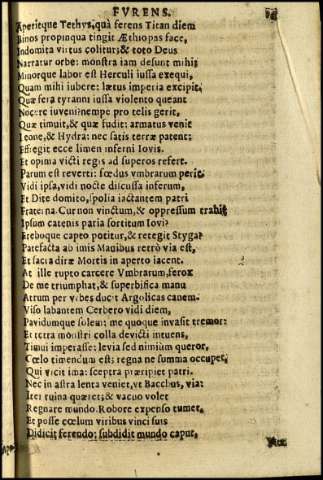 FVRENS.
Aperitque Tethys, quà ferens Titan diem
Binos propinqua tingit Æthiopas face,
Indomita virtus colitur; & toto Deus
Narratur orbe: monstra iam desunt mihi;
Minorque labor est Herculi iussa exequi,
Quam mihi iubere: lætus imperia excipit,
Quæ fera tyranni iussa violento queant
Nocere iuveni: nempe pro telis gerit,
Quæ timuit, & quæ fudit: armatus venit
Leone, & Hydra: nec satis terræ patent:
Effregit ecce limen inferni Iovis.
Et opima victi regis ad superos refert.
Parum est reverti: fœdus vmbrarum perit.
Vidi ipsa, vidi nocte discussa inferum,
Et Dite domito, spolia iactantem patri
Fraterna. Cur non vinctum, & oppressum trahit
Ipsum catenis paria sortitum Iovi?
Ereboque capto potitur, & retegit Styga?
Patefacta ab imis Manibus retrò via est,
Et sacra diræ Mortis in aperto iacent.
At ille rupto carcere Vmbrarum, ferox
De me triumphat, & superbifica manu
Atrum per vrbes ducit Argolicas canem.
Viso labantem Cerbero vidi diem,
Pavidumque solem: me quoque invasit tremor:
Et terna monstri colla devicti intuens,
Timui imperasse: levia sed nimium queror,
Cœlo timendum est; regna ne summa occupet,
Qui vicit ima: sceptra præripiet patri.
Nec in astra lenta veniet, vt Bacchus, via:
Iter ruina quæret; & vacuo volet
Regnare mundo. Robore expenso tumet,
Et posse cœlum viribus vinci suis
Didicit ferendo: subdidit mundo caput,